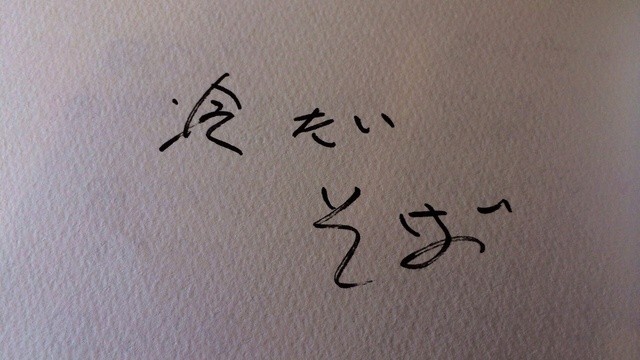 冷たい
そば